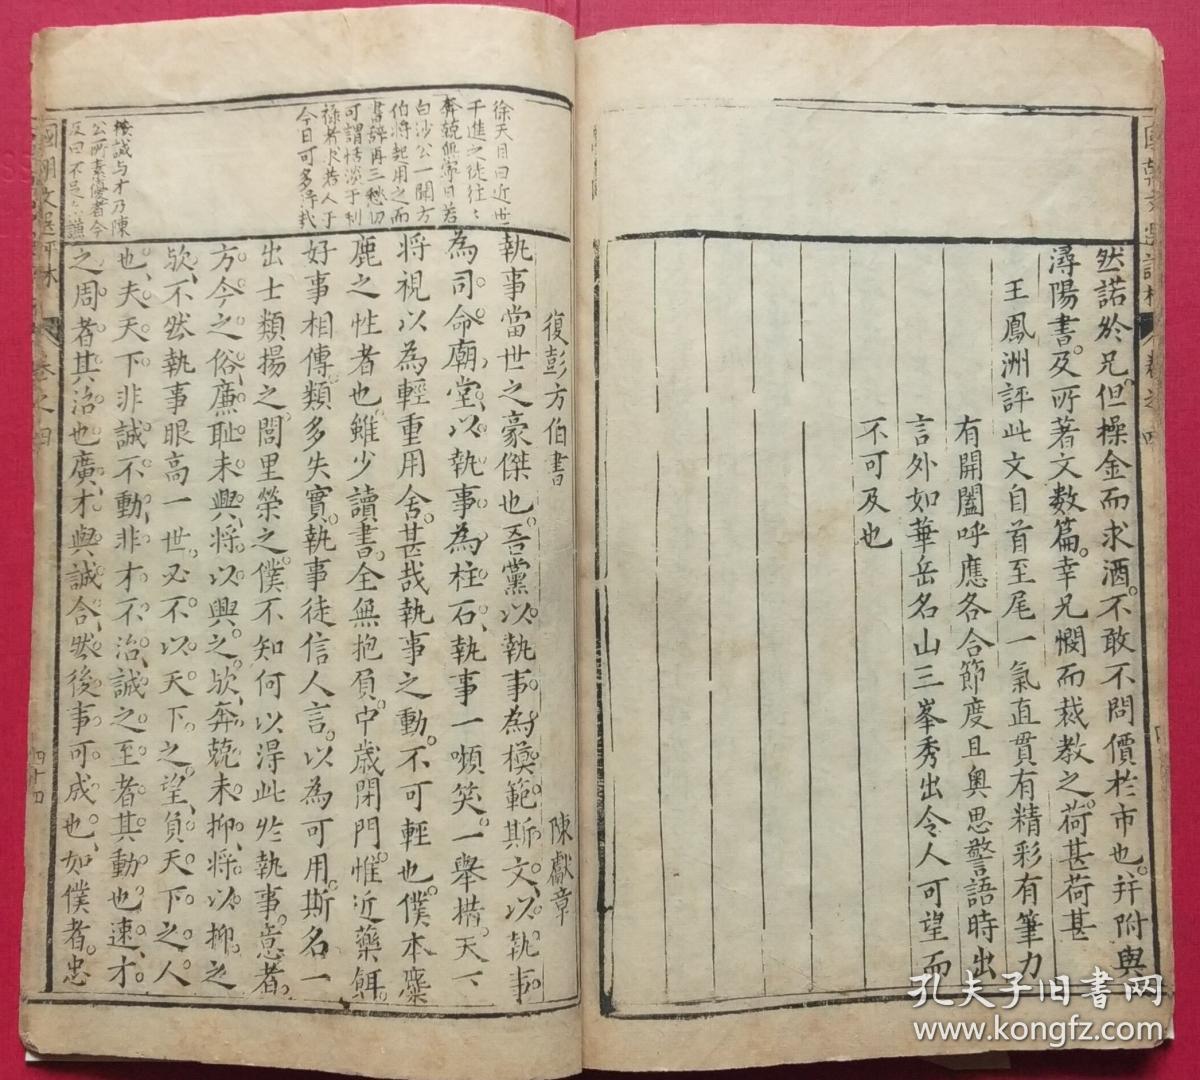 然諾於兄但操金而求酒不敢不問價於市也并附與
潯陽書及所著文數篇幸兄憫而裁教之荷甚荷甚
王鳳洲評此文自首至尾一氣直貫有精彩有筆力
有開闔呼應各合節度且奧思警語時出
言外如華岳名山三峯秀出令人可望而
不可及也
徐天目曰近世
干進之徒往〻
奔競無寧日若
白沙公一聞方
伯將起用之而
書辭再三愁切
可謂恬淡于利
祿者求若人于
今日可多得哉
復彭方伯書
陳獻章
執事當世之豪傑也吾黨以執事為模範斯文以執事
為司命廟堂以執事為柱石執事一嚬笑一舉措天下
將視以為輕重用舍甚哉執事之動不可輕也僕本麋
鹿之性者也雖少讀書全無抱負中歲閉門惟近藥餌
好事相傳類多失實執事徒信人言以為可用斯名一
出士類揚之閭里榮之僕不知何以得此於執事意者
方今之俗廉耻未興將以興之歟奔競未抑將以抑之
歟不然執事眼高一世必不以天下之望負天下之人
也夫天下非誠不動非才不治誠之至者其動也速才
之周者其治也廣才與誠合然後事可成也如僕者忠
按誠与才乃陳
公所素優者今
反曰不足〻謙
國朝文選評林
卷之四
四十四
孔夫子旧書网
www.kongfz.com